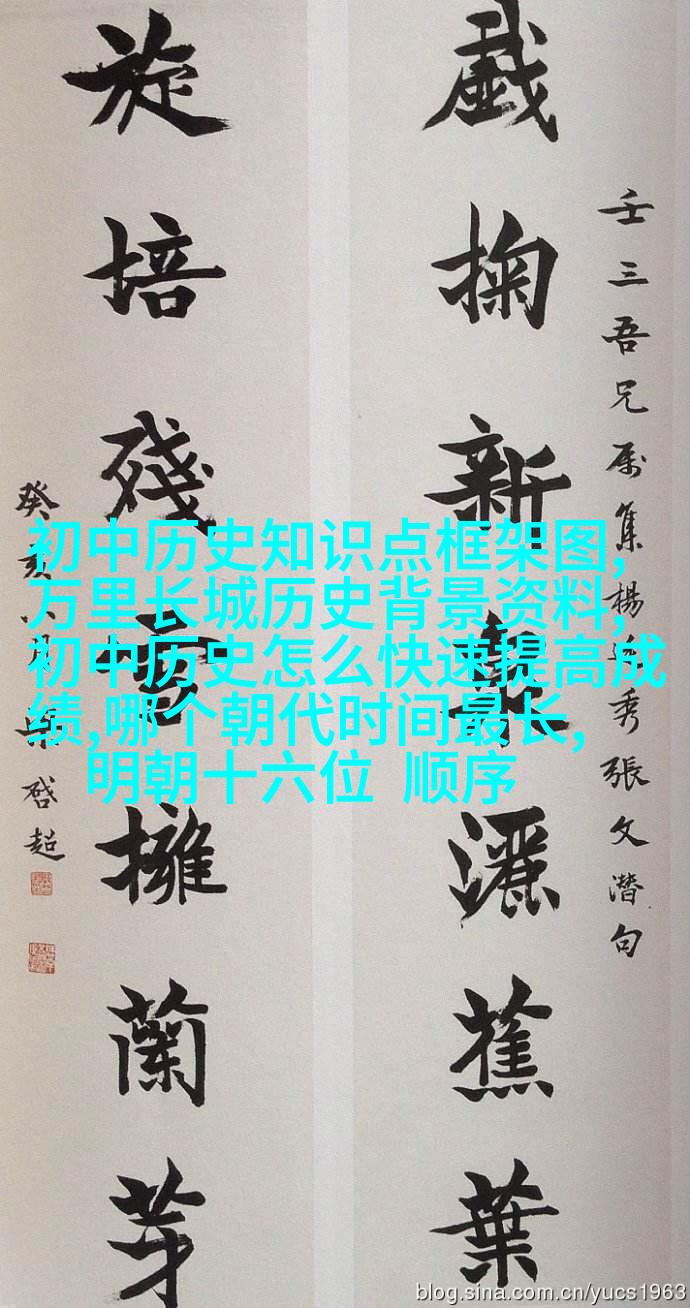 壬三吾兄属集楊廷秀張文潛句
戱掬新泉灑蕉葉
旋培殘雪擁蘭芽
癸亥八月梁啓超
初中历史知识点框架图,
万里长城历史背景资料,
初中历史怎么快速提高成
绩,哪个朝代时间最长,
明朝十六位 顺序
blog.sina.com.cn/yucs1963